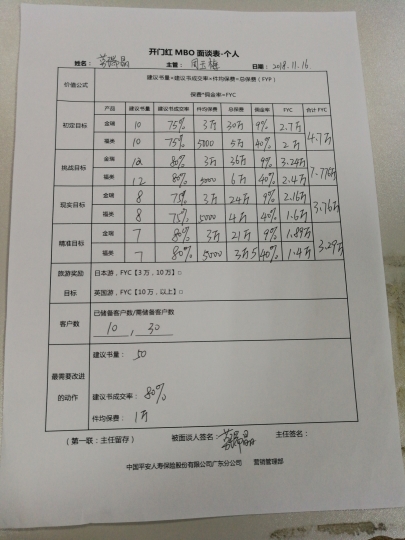 开门红 MBO 面谈表-个人
姓名： 主管：周云梅 日期：2018.11.16
价值公式 建议书量*建议书成交率=件均保费=总保费（FYP）
保费*佣金率=FYC
产品 建议书量 建议书成交率 件均保费 总保费 佣金率 FYC 合计 FYC
初定目标 金瑞 10 75% 3万 30万 9% 2.7万 4.7万
福类 10 75% 5000 5万 40% 2万
挑战目标 金瑞 12 80% 3万 36万 9% 3.24万
福类 12 80% 5000 6万 40% 2.4万
现实目标 金瑞 8 75% 3万 24万 9% 2.16万 3.76万
福类 8 75% 5000 4万 40% 1.6万
精准目标 金瑞 7 80% 3万 21万 9% 1.89万 3.29万
福类 7 80% 5000 40% 1.4万
旅游奖励 日本游，FYC【3万，10万】□
目标 英国游，FYC【10万，以上】□
客户数 已储备客户数/需储备客户数
10 , 30
最需要改进的动作 建议书量： 50
建议书成交率： 80%
件均保费： 1万
（第一联：主任留存） 被面谈人签名： 主任签名：
中国平安人寿保险股份有限公司广东分公司 营销管理部